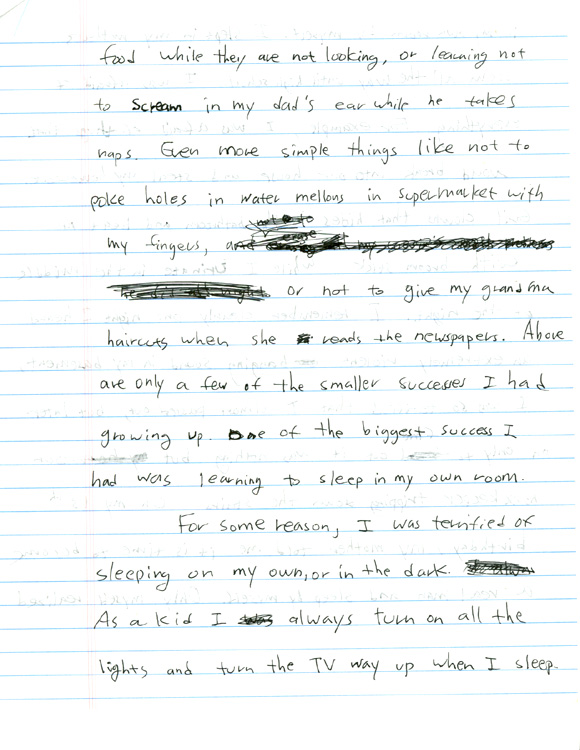 food while they are not looking, or learning not
to scream in my dad's ear while he takes
naps. Even more simple things like not to
poke holes in water mellons in supermarket with
my fingers,
or not to give my grandma
haircuts when she reads the newspapers. Above
are only a few of the smaller successes I had
growing up. One of the biggest success I
had was learning to sleep in my own room.
For some reason, I was terrified of
sleeping on my own, or in the dark.
As a kid I always turn on all the
lights and turn the TV way up when I sleep.